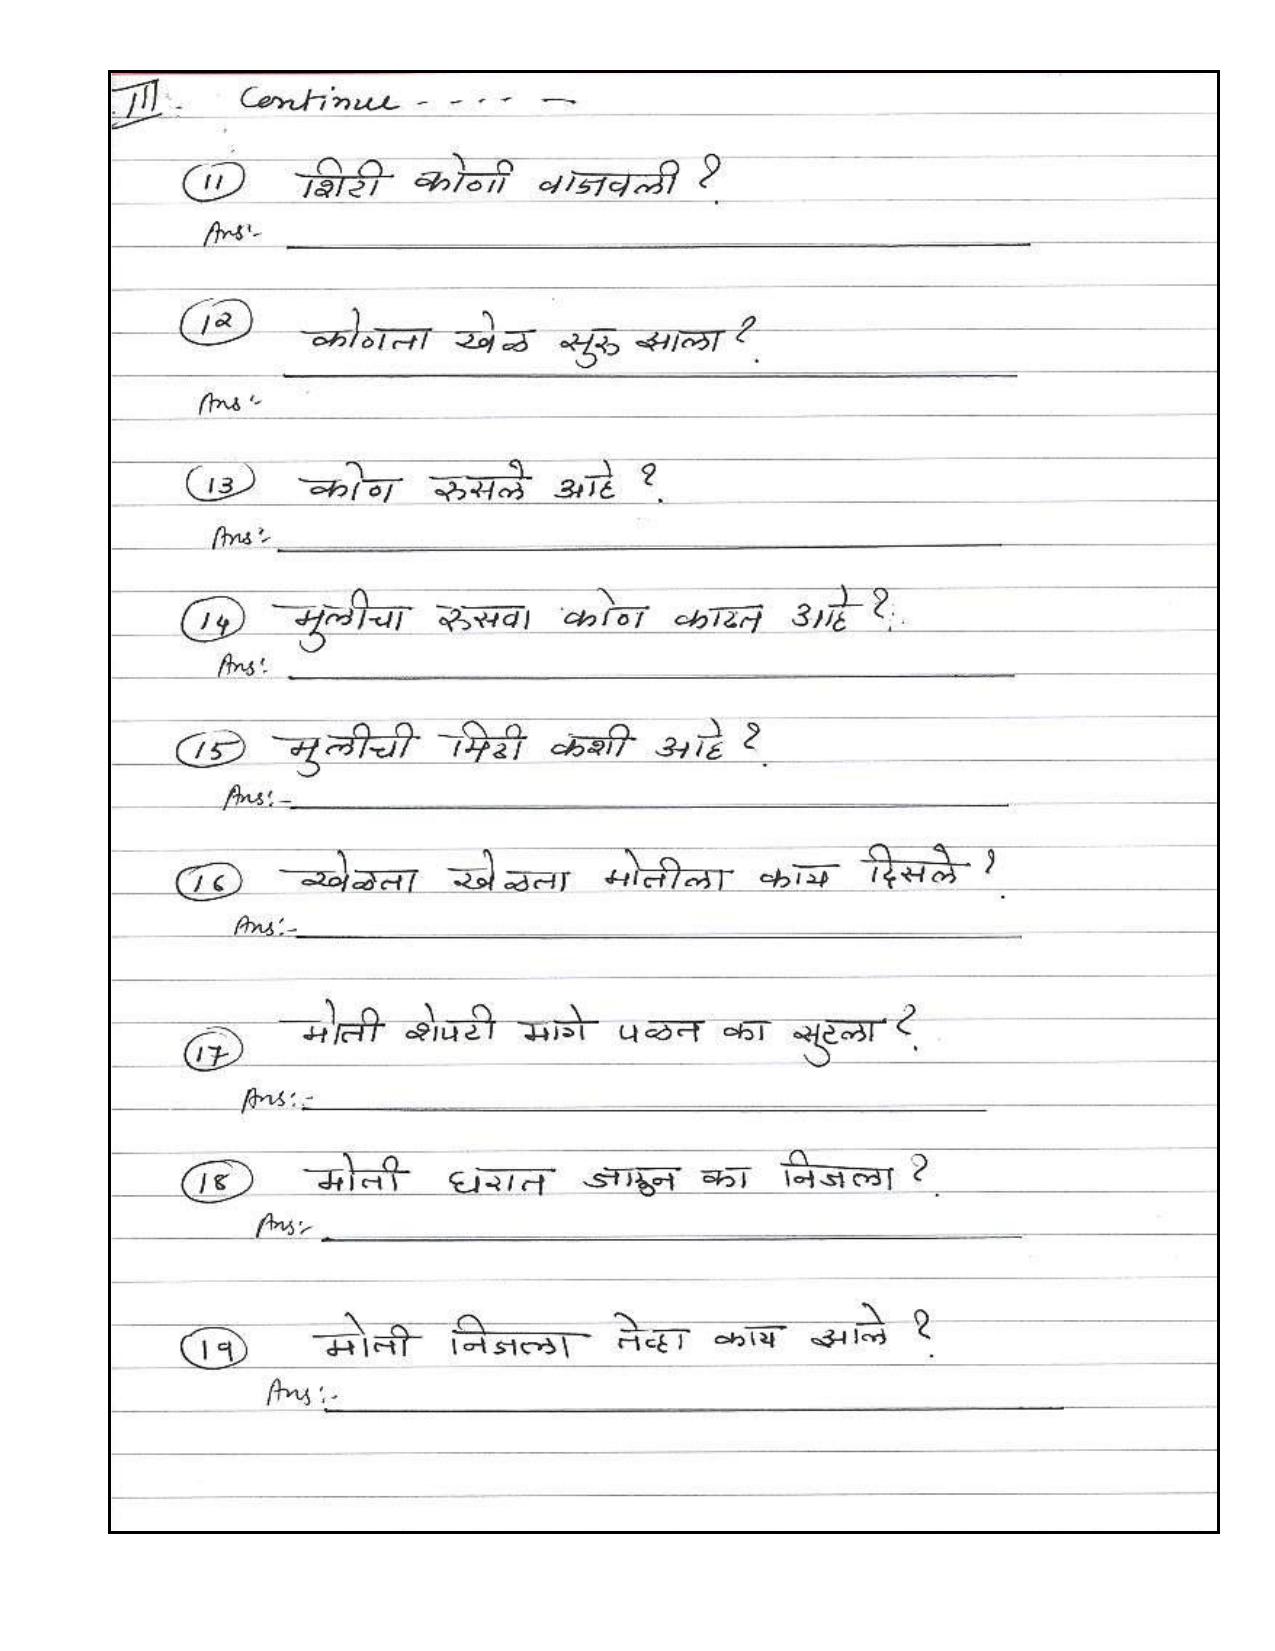 III. Continue - - - - -
11 शिटी कोणी वाजवली ?
Ans:-
12 कोणता खेळ सुरु झाला ?
Ans:-
13 कोण रुसले आहे ?
Ans:-
14 मुलीचा रुसवा कोण काढत आहे ?
Ans:
15 मुलीची मिठी कशी आहे ?
Ans:-
16 खेळता खेळता मोतीला काय दिसले ?
Ans:-
17 मोती शेपटी मागे पळत का सुटला ?
Ans:-
18 मोती घरात जाऊन का निजला ?
Ans:-
19 मोती निजला तेव्हा काय झाले ?
Ans:-